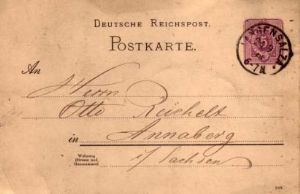 DEUTSCHE REICHSPOST.
POSTKARTE.
LANGENSALZA
6-7N
An
Herrn
Otto Reichelt
in Annaberg
Wohnung
(Strasse und
Hausnummer)
i/ Sachsen